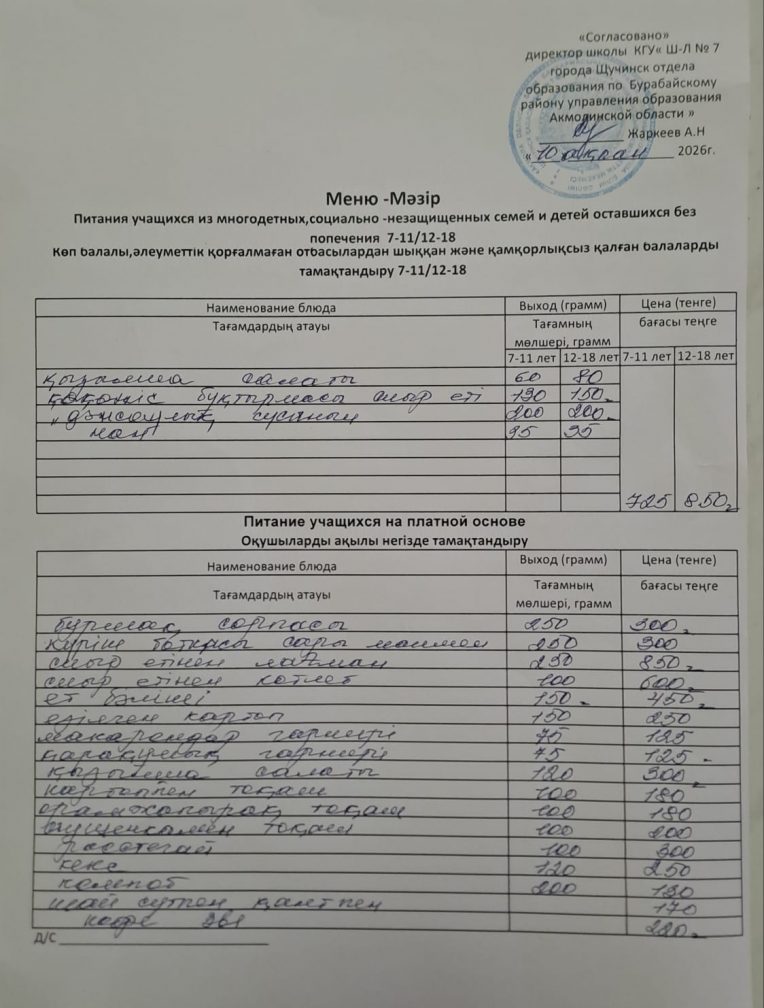 «Согласовано»
директор школы КГУ« Ш-Л № 7
города Щучинск отдела
образования по Бурабайскому
району управления образования
Акмолинской области »
Жаркеев А.Н
« 10 ақпан 2026г.
Меню -Мәзір
Питания учащихся из многодетных,социально -незащищенных семей и детей оставшихся без
попечения 7-11/12-18
Көп балалы,әлеуметтік қорғалмаған отбасылардан шыққан және қамқорлықсыз қалған балаларды
тамақтандыру 7-11/12-18
Наименование блюда Выход (грамм) Цена (тенге)
Тағамдардың атауы Тағамның мөлшері, грамм бағасы теңге
7-11 лет 12-18 лет 7-11 лет 12-18 лет
қызылша салаты 60 80
көкөніс бұқтырмасы сиыр еті 130 150
„Денсаулық сусаның 200 200
нан 35
725 850
Питание учащихся на платной основе
Оқушыларды ақылы негізде тамақтандыру
Наименование блюда Выход (грамм) Цена (тенге)
Тағамдардың атауы Тағамның мөлшері, грамм бағасы теңге
бұршақ сорпасы 250 300
күріш ботқасы сары маймен 250 300
сиыр етінен лағман 250 850
сиыр етінен котлет 100 600
ет бәліші 150 450
езілген картоп 150 250
макарондар гарнирі 75 125
қарақұмық гарнирі 75 125
қызылша салаты 120 300
картоппен тоқаш 100 180
орамжапырақ тоқаш 100 180
сгущенкамен тоқаш 100 200
расстегай 100 300
кекс 120 250
компот 200 130
шай сүтпен қантпен 170
кофе 3в1 220
Д/С